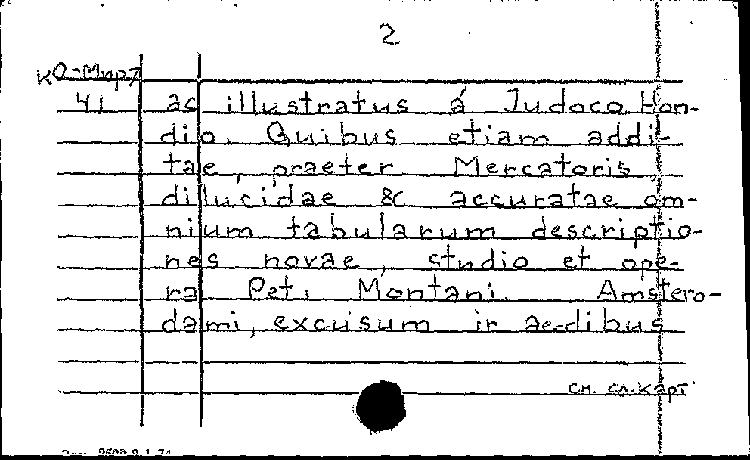 2
КО-Мирт
41 ac illustratus á Judoco Hon-
dio. Quibus etiam addi-
tae, praeter Mercatoris
dilucidae & accuratae om-
nium tabularum descriptio-
nes novae, studio et ope-
ra Pet. Montani. Amstero-
dami, excusum in aedibus
см. сл. карт